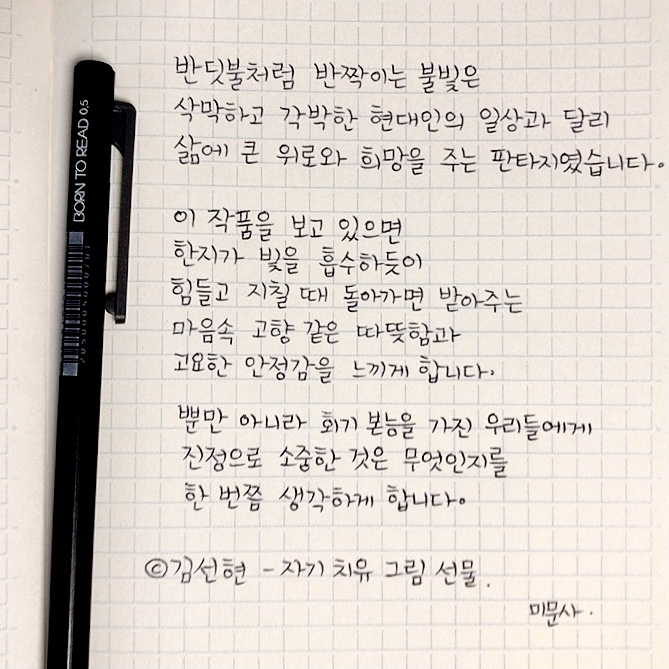 BORN TO READ 0.5
반딧불처럼 반짝이는 불빛은
삭막하고 각박한 현대인의 일상과 달리
삶에 큰 위로와 희망을 주는 판타지였습니다.
이 작품을 보고 있으면
한지가 빛을 흡수하듯이
힘들고 지칠 때 돌아가면 받아주는
마음속 고향 같은 따뜻함과
고요한 안정감을 느끼게 합니다.
뿐만 아니라 회기 본능을 가진 우리들에게
진정으로 소중한 것은 무엇인지를
한 번쯤 생각하게 합니다.
©김선현 - 자기 치유 그림 선물.
미문사.